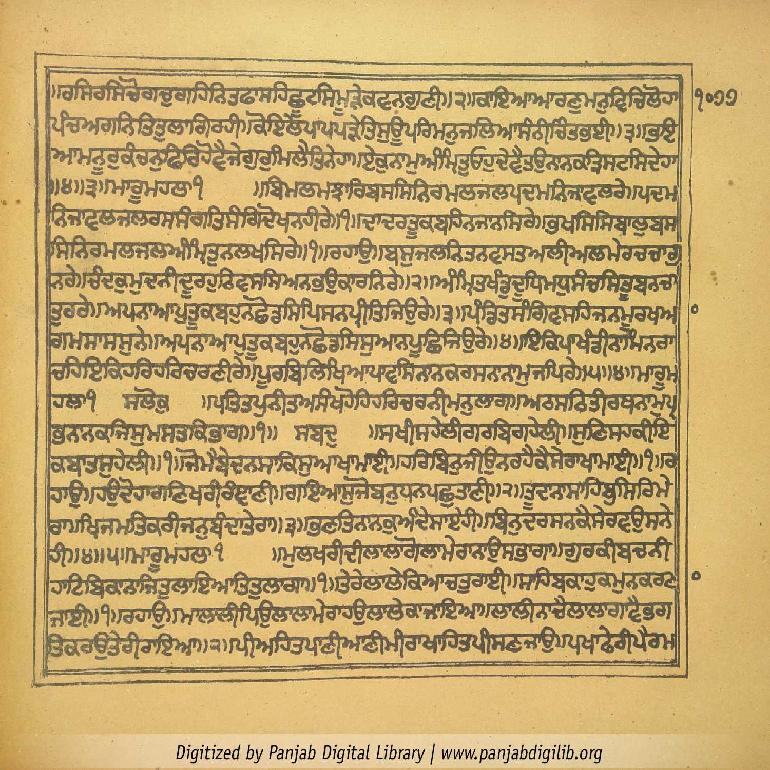 ॥ਰਸਿਰਸਿਚੋਗਚੁਗਹਿਨਿਤਫਾਸਹਿਛੂਟਸਿਮੂੜੇਕਵਨਗੁਣੀ॥੨॥ਕਾਇਆਆਰਣੁਮਨੁਵਿਚਿਲੋਹਾ ੧੦੭੭
ਪੰਚਅਗਨਿਤਿਤੁਲਾਗਿਰਹੀ॥ਕੋਇਲੇਪਾਪਪੜੇਤਿਸੁਊਪਰਿਮਨੁਜਲਿਆਸੰਨੀਚਿੰਤਭਈ॥੩॥ਭਇ
ਆਮਨੂਰੁਕੰਚਨੁਫਿਰਿਹੋਵੈਜੇਗੁਰੁਮਿਲੈਤਿਨੇਹਾ॥ਏਕੁਨਾਮੁਅੰਮ੍ਰਿਤੁਓਹੁਦੇਵੈਤਉਨਾਨਕਤ੍ਰਿਸਟਸਿਦੇਹਾ
॥੪॥੩॥ਮਾਰੂਮਹਲਾ੧ ॥ਬਿਮਲਮਝਾਰਿਬਸਸਿਨਿਰਮਲਜਲਪਦਮਨਿਜਾਵਲਰੇ॥ਪਦਮ
ਨਿਜਾਵਲਜਲਰਸਸੰਗਤਿਸੰਗਿਦੋਖਨਹੀਰੇ॥੧॥ਦਾਦਰਤੂਕਬਹਿਨਜਾਨਸਿਰੇ॥ਭਖਸਿਸਿਬਾਲੁਬਸ
ਸਿਨਿਰਮਲਜਲਅੰਮ੍ਰਿਤੁਨਲਖਸਿਰੇ॥੧॥ਰਹਾਉ॥ਬਸੁਜਲਨਿਤਨਵਸਤਅਲੀਅਲਮੇਰਚਚਾਗੁ
ਨਰੇ॥ਚੰਦਕੁਮੁਦਨੀਦੂਰਹੁਨਿਵਸਸਿਅਨਭਉਕਾਰਨਿਰੇ॥੨॥ਅੰਮ੍ਰਿਤਖੰਡੁਦੂਧਿਮਧੁਸੰਚਸਿਤੂਬਨਚਾ
ਤੁਰਰੇ॥ਅਪਨਾਆਪੁਤੂਕਬਹੁਨਛੋਡਸਿਪਿਸਨਪ੍ਰੀਤਿਜਿਉਰੇ॥੩॥ਪੰਡਿਤਸੰਗਿਵਸਹਿਜਨਮੂਰਖਅ
ਗਮਸਾਸਸੁਨੇ॥ਅਪਨਾਆਪੁਤੂਕਬਹੁਨਛੋਡਸਿਸੁਆਨਪੂਛਿਜਿਉਰੇ॥੪॥ਇਕਿਪਾਖੰਡੀਨਾਮਿਨਰਾ
ਚਹਿਇਕਿਹਰਿਹਰਿਚਰਣੀਰੇ॥ਪੂਰਬਿਲਿਖਿਆਪਾਵਸਿਨਾਨਕਰਸਨਾਨਾਮੁਜਪਿਰੇ॥੫॥੪॥ਮਾਰੂਮ
ਹਲਾ੧ ਸਲੋਕੁ ॥ਪਤਿਤਪੁਨੀਤਅਸੰਖਹੋਹਿਹਰਿਚਰਨੀਮਨੁਲਾਗ॥ਅਠਸਠਿਤੀਰਥਨਾਮੁਪ੍ਰ
ਭਨਾਨਕਜਿਸੁਮਸਤਕਿਭਾਗ॥੧॥ ਸਬਦੁ ॥ਸਖੀਸਹੇਲੀਗਰਬਿਗਹੇਲੀ॥ਸੁਣਿਸਹਕੀਇ
ਕਬਾਤਸੁਹੇਲੀ॥੧॥ਜੋਮੈਬੇਦਨਸਾਕਿਸੁਆਖਾਮਾਈ॥ਹਰਿਬਿਨੁਜੀਉਨਰਹੈਕੈਸੇਰਾਖਾਮਾਈ॥੧॥ਰ
ਹਾਉ॥ਹਉਦੋਹਾਗਣਿਖਰੀਰੰਞਾਣੀ॥ਗਇਆਸੁਜੋਬਨੁਧਨਪਛੁਤਾਣੀ॥੨॥ਤੂਦਾਨਾਸਾਹਿਬੁਸਿਰਿਮੇ
ਰਾ॥ਖਿਜਮਤਿਕਰੀਜਨੁਬੰਦਾਤੇਰਾ॥੩॥ਭਣਤਿਨਾਨਕੁਅੰਦੇਸਾਏਹੀ॥ਬਿਨੁਦਰਸਨਕੈਸੇਰਵਉਸਨੇ
ਹੀ॥੪॥੫॥ਮਾਰੂਮਹਲਾ੧ ॥ਮੁਲਖਰੀਦੀਲਾਲਾਗੋਲਾਮੇਰਾਨਾਉਸਭਾਗਾ॥ਗੁਰਕੀਬਚਨੀ
ਹਾਟਿਬਿਕਾਨਾਜਿਤੁਲਾਇਆਤਿਤੁਲਾਗਾ॥੧॥ਤੇਰੇਲਾਲੇਕਿਆਚਤੁਰਾਈ॥ਸਾਹਿਬਕਾਹੁਕਮੁਨਕਰਣਾ
ਜਾਈ॥੧॥ਰਹਾਉ॥ਮਾਲਾਲੀਪਿਉਲਾਲਾਮੇਰਾਹਉਲਾਲੇਕਾਜਾਇਆ॥ਲਾਲੀਨਾਚੈਲਾਲਾਗਾਵੈਭਗ
ਤਿਕਰਉਤੇਰੀਰਾਇਆ॥੨॥ਪੀਅਹਿਤਪਾਣੀਆਣੀਮੀਰਾਖਾਹਿਤਪੀਸਣਜਾਉ॥ਪਖਾਫੇਰੀਪੈਰਮ
Digitized by Panjab Digital Library | www.panjabdigilib.org